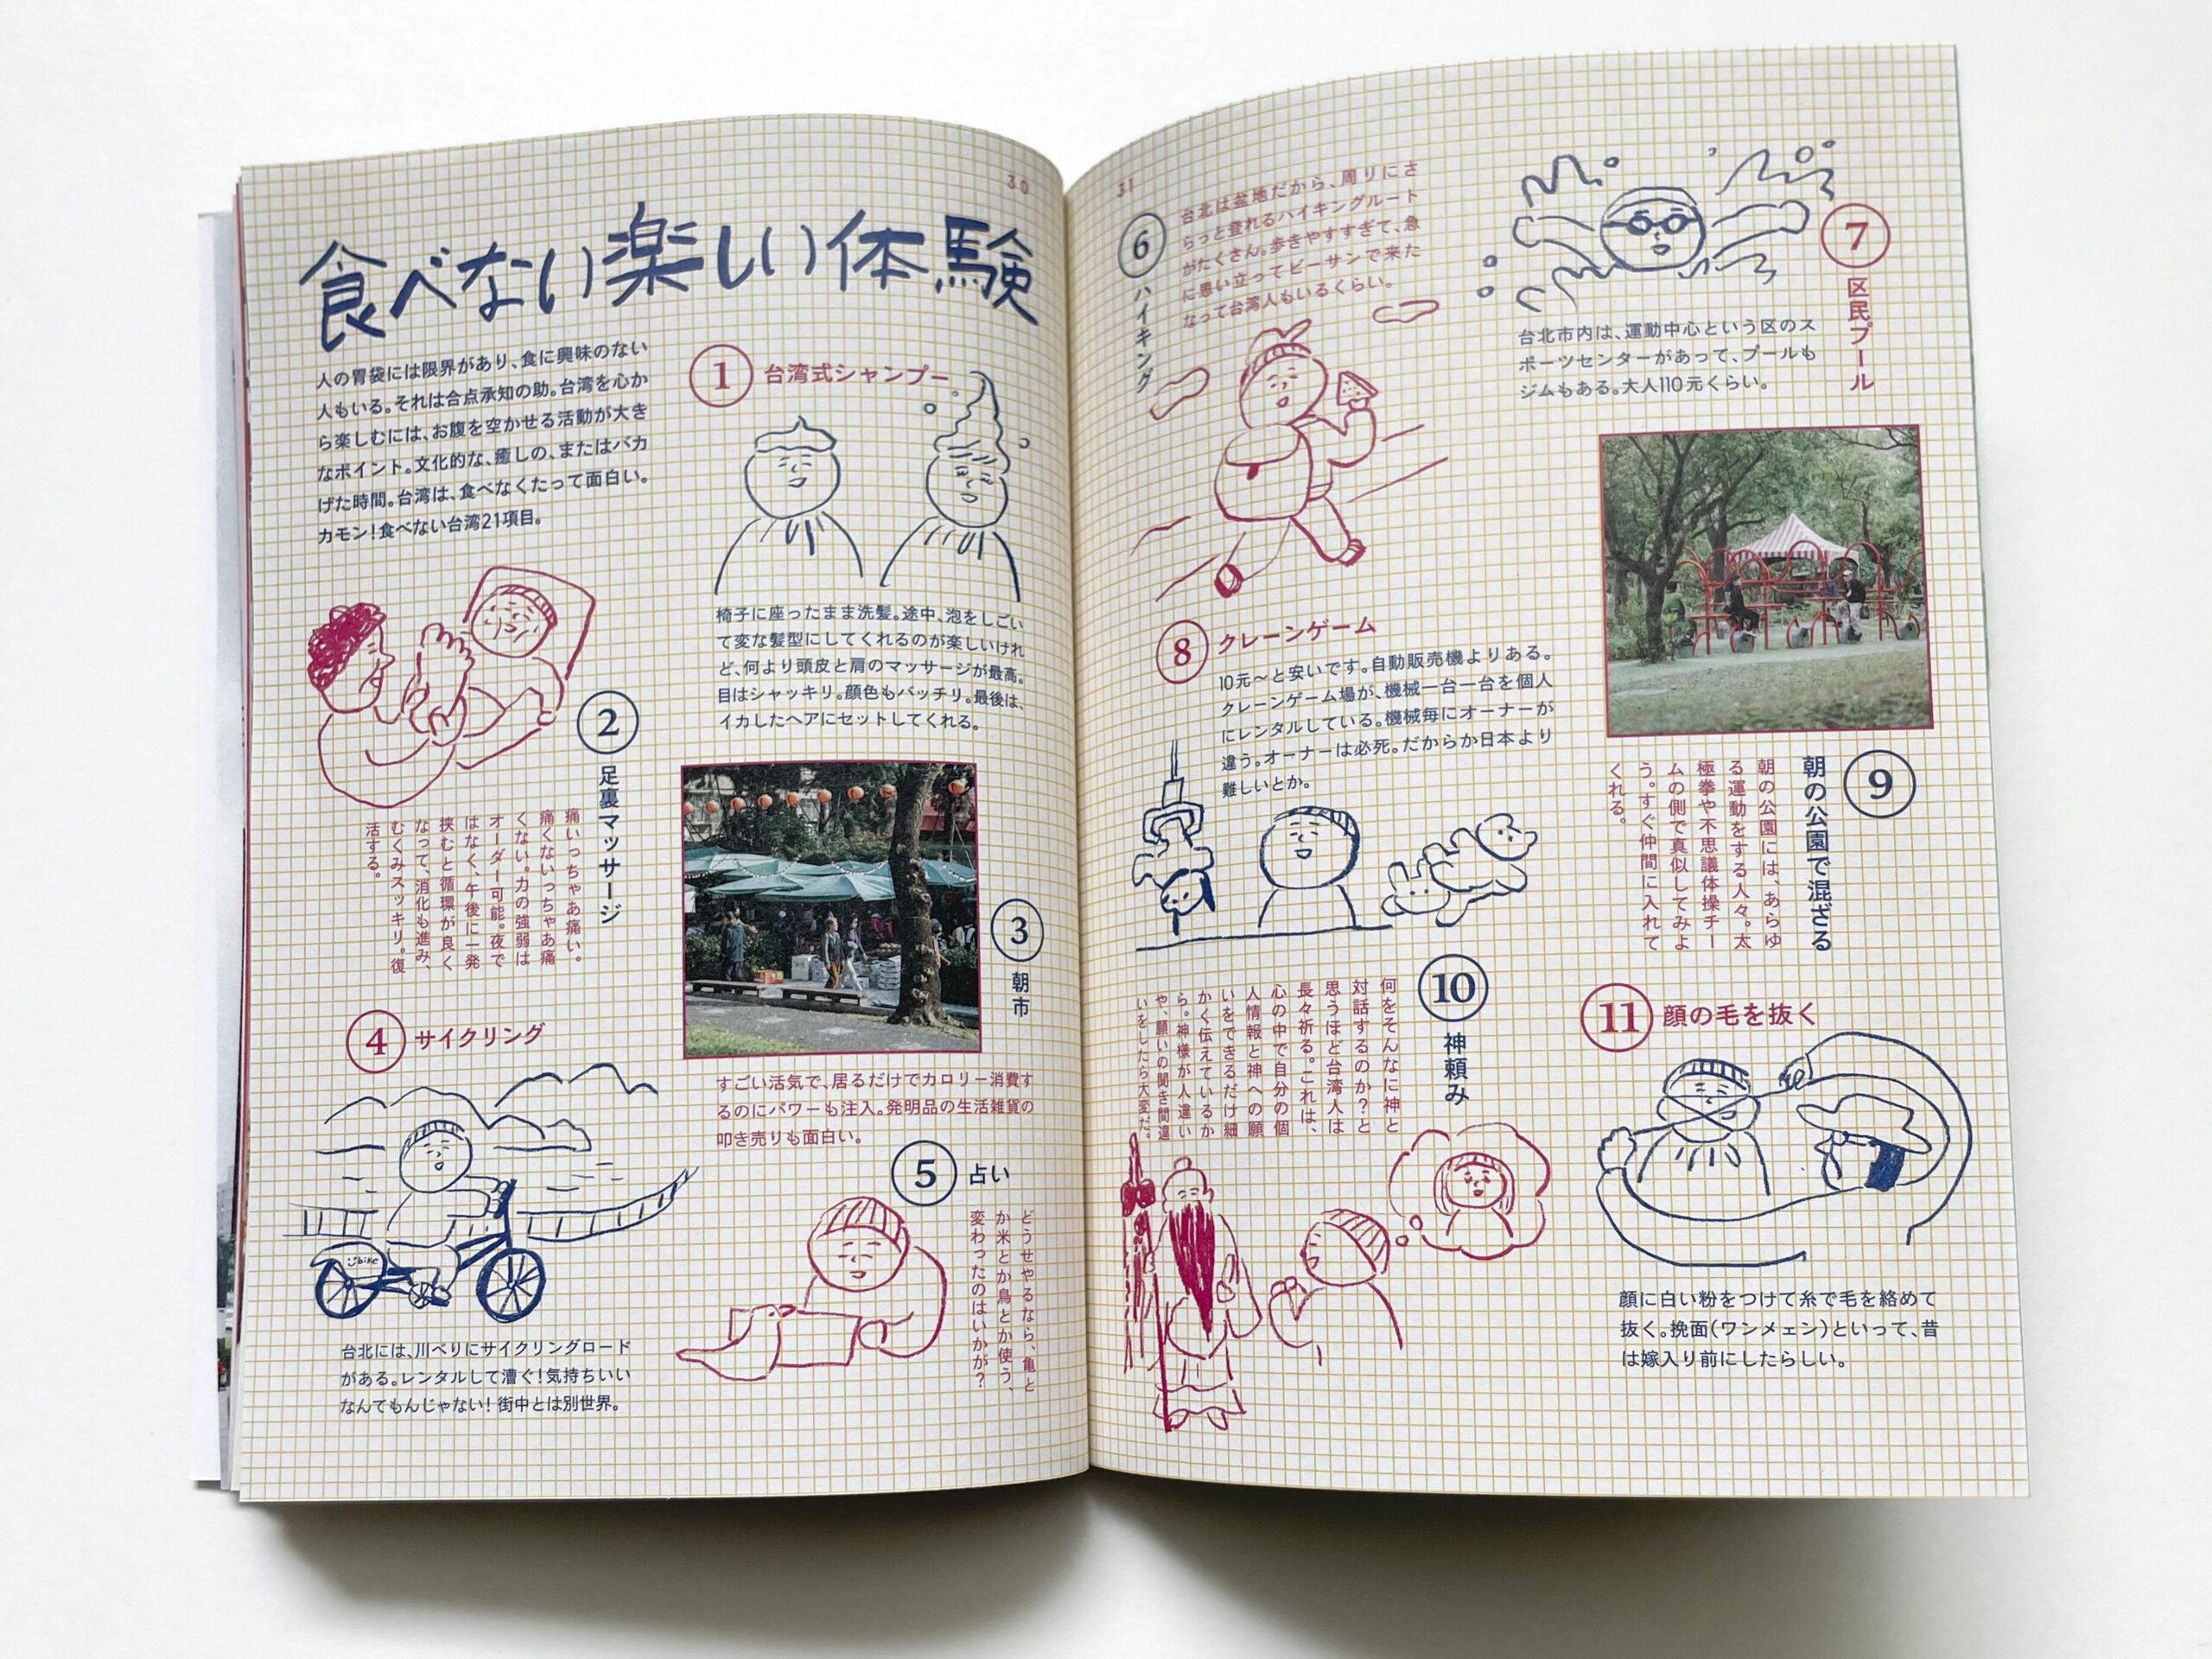 30
食べない楽しい体験
人の胃袋には限界があり、食に興味のない
人もいる。それは合点承知の助。台湾を心か
ら楽しむには、お腹を空かせる活動が大き
なポイント。文化的な、癒しの、またはバカ
げた時間。台湾は、食べなくたって面白い。
カモン！食べない台湾21項目。
1 台湾式シャンプー
椅子に座ったまま洗髪。途中、泡をしごい
て変な髪型にしてくれるのが楽しいけれ
ど、何より頭皮と肩のマッサージが最高。
目はシャッキリ。顔色もバッチリ。最後は、
イカしたヘアにセットしてくれる。
2 足裏マッサージ
痛いっちゃあ痛い。
痛くないっちゃあ痛
くない。力の強弱は
オーダー可能。夜で
はなく、午後に一発
挟むと循環が良く
なって、消化も進み、
むくみスッキリ。復
活する。
3 朝市
すごい活気で、居るだけでカロリー消費す
るのにパワーも注入。発明品の生活雑貨の
叩き売りも面白い。
4 サイクリング
Ubike
台北には、川べりにサイクリングロード
がある。レンタルして漕ぐ！気持ちいい
なんてもんじゃない！街中とは別世界。
5 占い
どうせやるなら、亀と
か米とか鳥とか使う、
変わったのはいかが？
31
6 ハイキング
台北は盆地だから、周りにさ
らっと登れるハイキングルート
がたくさん。歩きやすすぎて、急
に思い立ってビーサンで来た
なって台湾人もいるくらい。
7 区民プール
台北市内は、運動中心という区のス
ポーツセンターがあって、プールも
ジムもある。大人110元くらい。
8 クレーンゲーム
10元〜と安いです。自動販売機よりある。
クレーンゲーム場が、機械一台一台を個人
にレンタルしている。機械毎にオーナーが
違う。オーナーは必死。だからか日本より
難しいとか。
9 朝の公園で混ざる
朝の公園には、あらゆ
る運動をする人々。太
極拳や不思議体操チー
ムの側で真似してみよ
う。すぐ仲間に入れて
くれる。
10 神頼み
何をそんなに神と
対話するのか？と
思うほど台湾人は
長々祈る。これは、
心の中で自分の個
人情報と神への願
いをできるだけ細
かく伝えているか
ら。神様が人違い
や、願いの聞き間違
いをしたら大変だ。
11 顔の毛を抜く
顔に白い粉をつけて糸で毛を絡めて
抜く。挽面（ワンメェン）といって、昔
は嫁入り前にしたらしい。